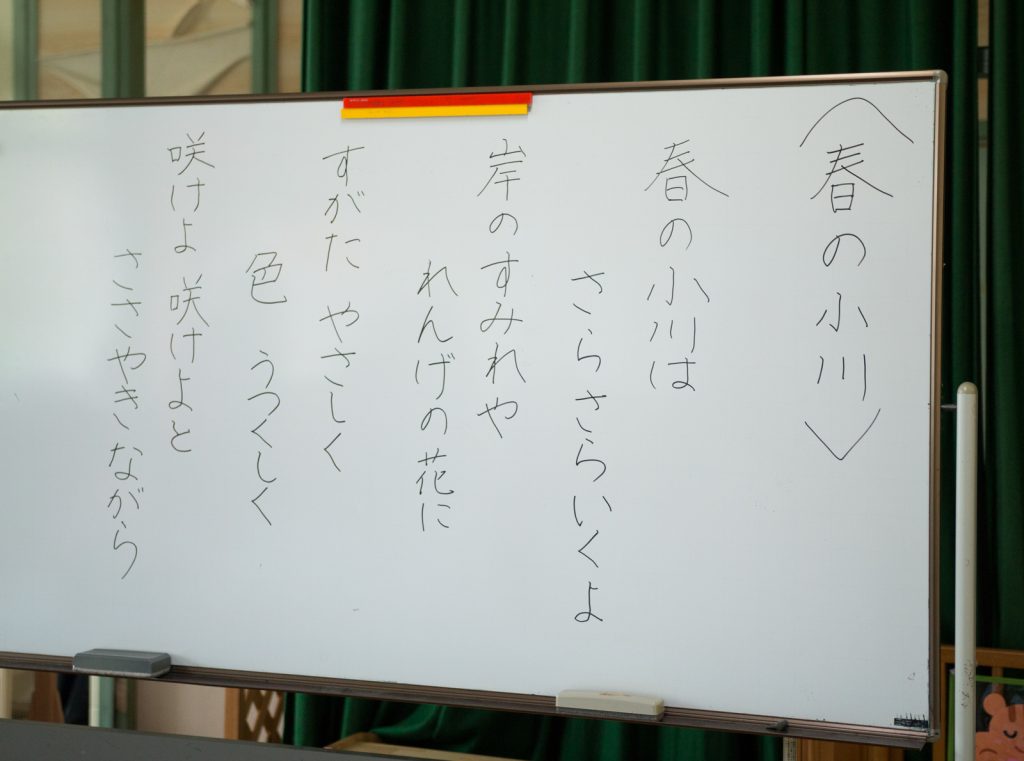 〈春の小川〉
春の小川は
さらさらいくよ
岸のすみれや
れんげの花に
すがた やさしく
色 うつくしく
咲けよ 咲けよと
ささやきながら